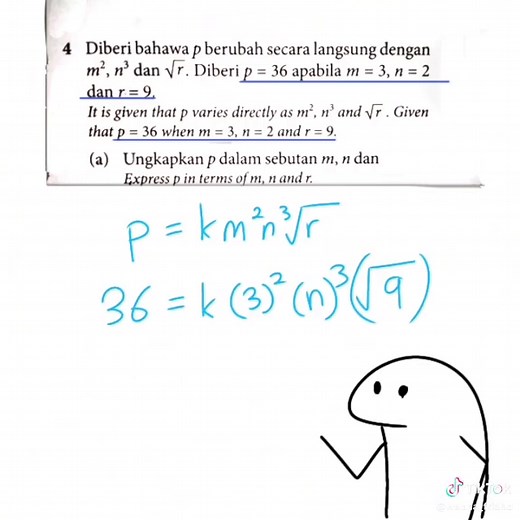 4 Diberi bahawa p berubah secara langsung dengan
m², n³ dan √r. Diberi p = 36 apabila m = 3, n = 2
dan r = 9.
It is given that p varies directly as m², n³ and √r. Given
that p = 36 when m = 3, n = 2 and r = 9.
(a) Ungkapkan p dalam sebutan m, n dan
Express p in terms of m, n and r.
p = km²n³√r
36 = k(3)²(n)³(√9)
TikTok